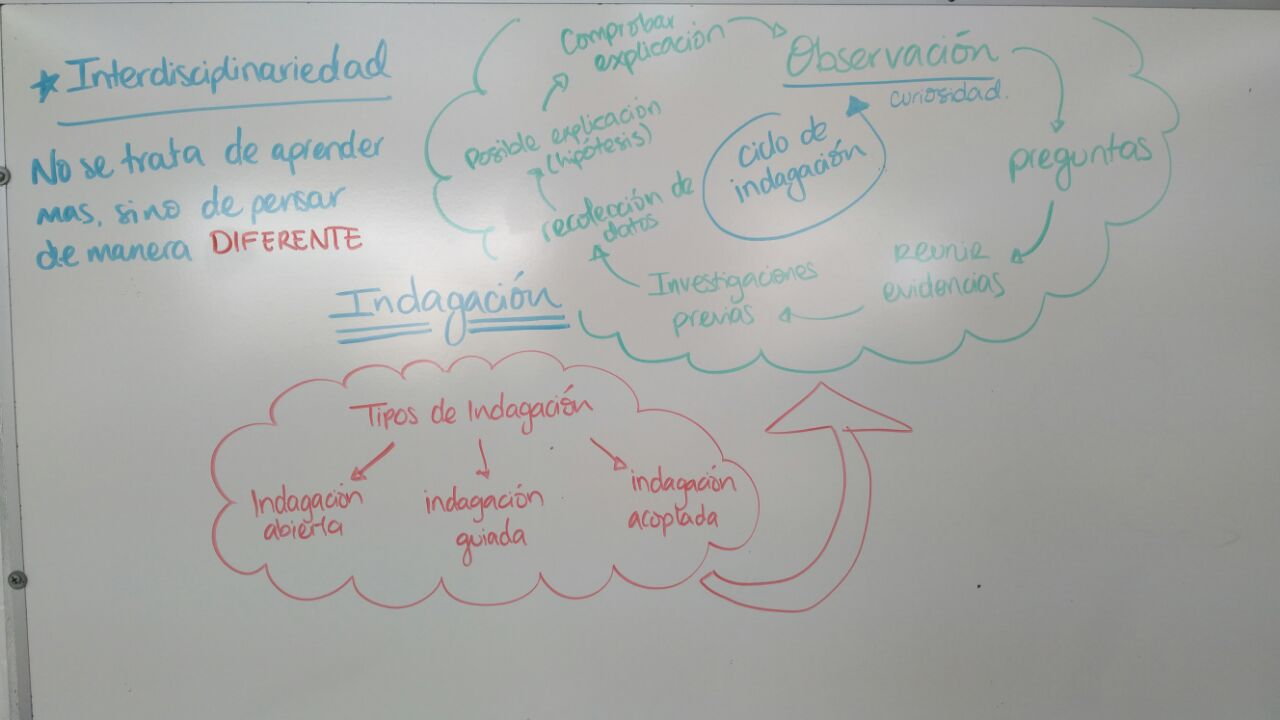 Interdisciplinariedad
No se trata de aprender
mas, sino de pensar
de manera DIFERENTE
Indagación
ciclo de
indagación
Observación
curiosidad.
preguntas
Reunir
evidencias
Investigaciones
previas
recolección de
datos
Posible explicación
(hipótesis)
Comprobar
explicación
Tipos de Indagación
Indagación
abierta
indagación
guiada
indagación
acoplada